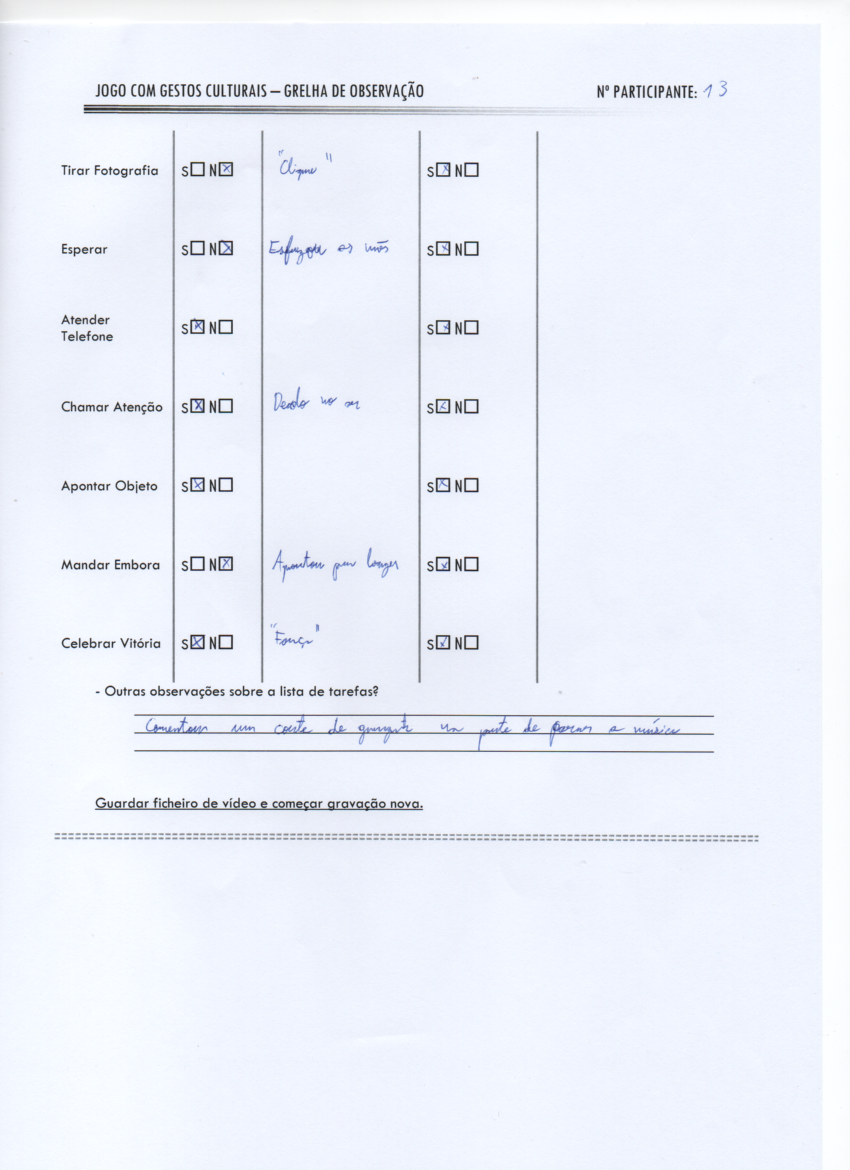 JOGO COM GESTOS CULTURAIS – GRELHA DE OBSERVAÇÃO Nº PARTICIPANTE: 13
Tirar Fotografia S☐ N☒ "Clique" S☒ N☐
Esperar S☐ N☒ as mãos S☒ N☐
Atender
Telefone S☒ N☐ S☒ N☐
Chamar Atenção S☒ N☐ Dedo no ar S☒ N☐
Apontar Objeto S☒ N☐ S☒ N☐
Mandar Embora S☐ N☒ Apontou para longe S☒ N☐
Celebrar Vitória S☒ N☐ "Força" S☒ N☐
- Outras observações sobre a lista de tarefas?
um corte de garganta na parte de parar a música
Guardar ficheiro de vídeo e começar gravação nova.